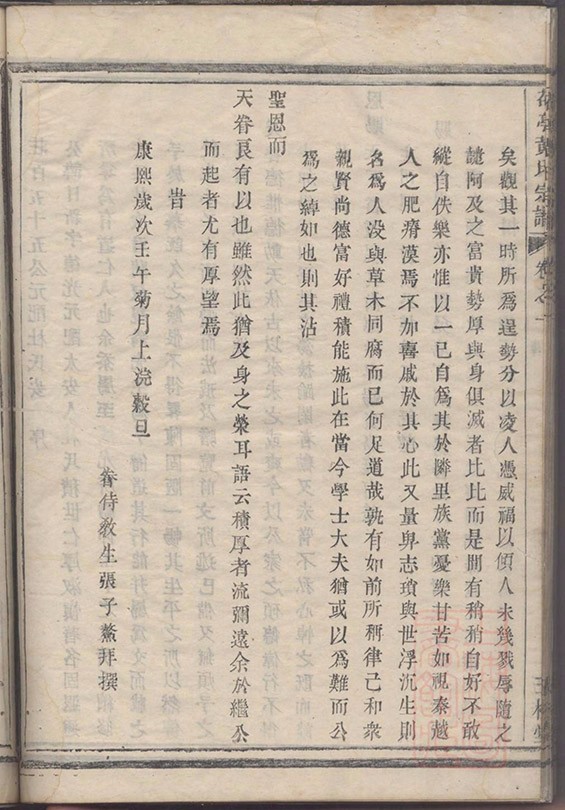 宗譜 卷之一
矣觀其一時所爲逞勢分以凌人憑威福以傾人未幾戮辱隨之
譴阿及之富貴勢厚與身俱滅者比比而是間有稍稍自好不敢
縱自佚樂亦惟以一已自爲其於隣里族黨憂樂甘苦如視秦越
人之肥瘠漠焉不加喜戚於其心此又量卑志瑣與世浮沉生則
名爲人没與草木同腐而已何足道哉孰有如前所稱律己和衆
親賢尚德富好禮積能施此在當今學士大夫猶或以爲難而公
爲之綽如也則其沾
聖恩而
天眷良有以也雖然此猶及身之榮耳語云積厚者流彌遠余於繼公
而起者尤有厚望焉
旹
康熙歲次壬午菊月上浣穀旦
眷侍敎生張子鰲拜撰